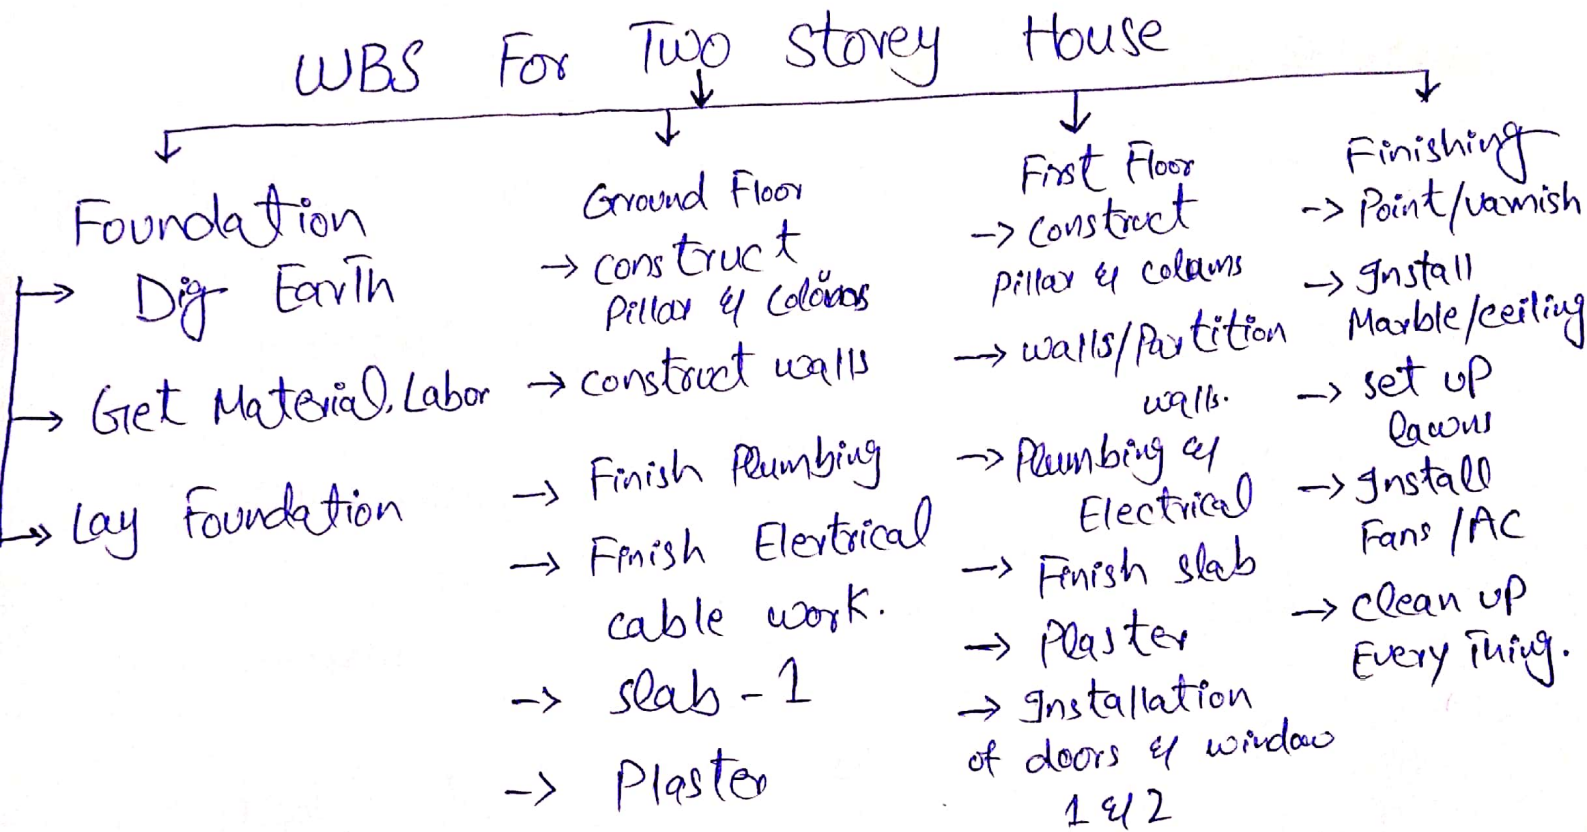 WBS For Two Storey House
Foundation
Dig Earth
Get Material, Labor
Lay Foundation
Ground Floor
→ construct
Pillar &
→ construct walls
→ Finish Plumbing
→ Finish Elertrical
cable work.
→ slab - 1
→ Plaster
First Floor
→ construct
Pillar & Colams
→ walls/Partition
walls.
→ Plumbing &
Electrical
→ Finish slab
→ Plaster
→ Installation
of doors & window
1 & 2
Finishing
→ Point/varnish
→ Install
Marble/ceiling
→ set up
lawns
→ Install
Fans /AC
→ clean up
Every Thing.